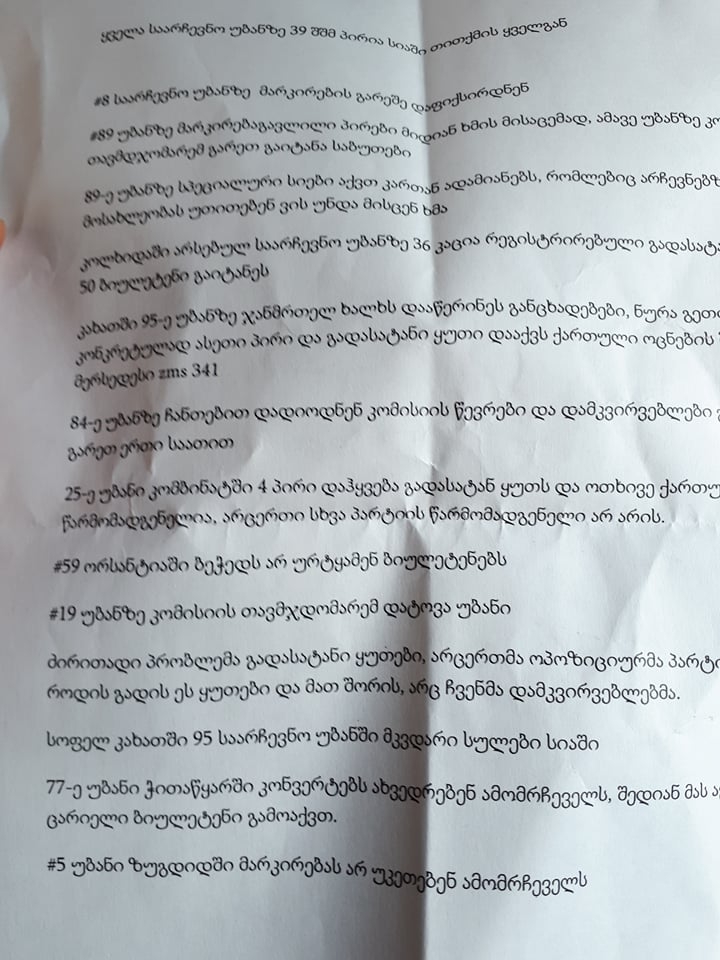 ყველა საარჩევნო უბანზე 39 შშმ პირია სიაში თითქმის ყველგან
#8 საარჩევნო უბანზე მარკირების გარეშე დაფიქსირდნენ
#89 უბანზე მარკირებაგავლილი პირები მიდიან ხმის მისაცემად, ამავე უბანზე
თავმდჯომარემ გარეთ გაიტანა საბუთები
89-ე უბანზე სპეციალური სიები აქვთ კართან ადამიანებს, რომლებიც
მოსახლეობას უთითებენ ვის უნდა მისცენ ხმა
კოლხიდაში არსებულ საარჩევნო უბანზე 36 კაცია რეგისტრირებული
50 ბიულეტენი გაიტანეს
კახათში 95-ე უბანზე ჯანმრთელ ხალხს დააწერინეს განცხადებები, ნურა
კონკრეტულად ასეთი პირი და გადასატანი ყუთი დააქვს ქართული ოცნების
მერსედესი zms 341
84-ე უბანზე ჩანთებით დადიოდნენ კომისიის წევრები და დამკვირვებლები
გარეთ ერთი საათით
25-ე უბანი კომბინატში 4 პირი დაჰყვება გადასატან ყუთს და ოთხივე
წარმომადგენელია, არცერთი სხვა პარტიის წარმომადგენელი არ არის.
#59 ორსანტიაში ბეჭედს არ ურტყამენ ბიულეტენებს
#19 უბანზე კომისიის თავმჯდომარემ დატოვა უბანი
ძირითადი პრობლემა გადასატანი ყუთები, არცერთმა ოპოზიციურმა
როდის გადის ეს ყუთები და მათ შორის, არც ჩვენმა დამკვირვებლებმა.
სოფელ კახათში 95 საარჩევნო უბანში მკვდარი სულები სიაში
77-ე უბანი ჭითაწყარში კონვერტებს ახვედრებენ ამომრჩეველს, შედიან მას
ცარიელი ბიულეტენი გამოაქვთ.
#5 უბანი ზუგდიდში მარკირებას არ უკეთებენ ამომრჩეველს